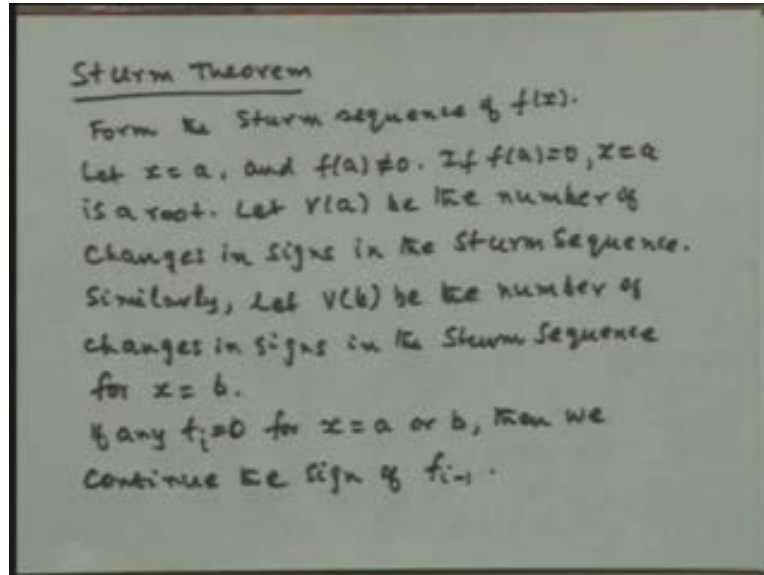 Sturm Theorem
Form the Sturm sequence of f(x).
Let x = a, and f(a) ≠ 0. If f(a)=0, x=a
is a root. Let V(a) be the number of
changes in signs in the Sturm Sequence.
Similarly, Let V(b) be the number of
changes in signs in the Sturm Sequence
for x = b.
If any fᵢ=0 for x = a or b, then we
continue the sign of fᵢ₋₁.